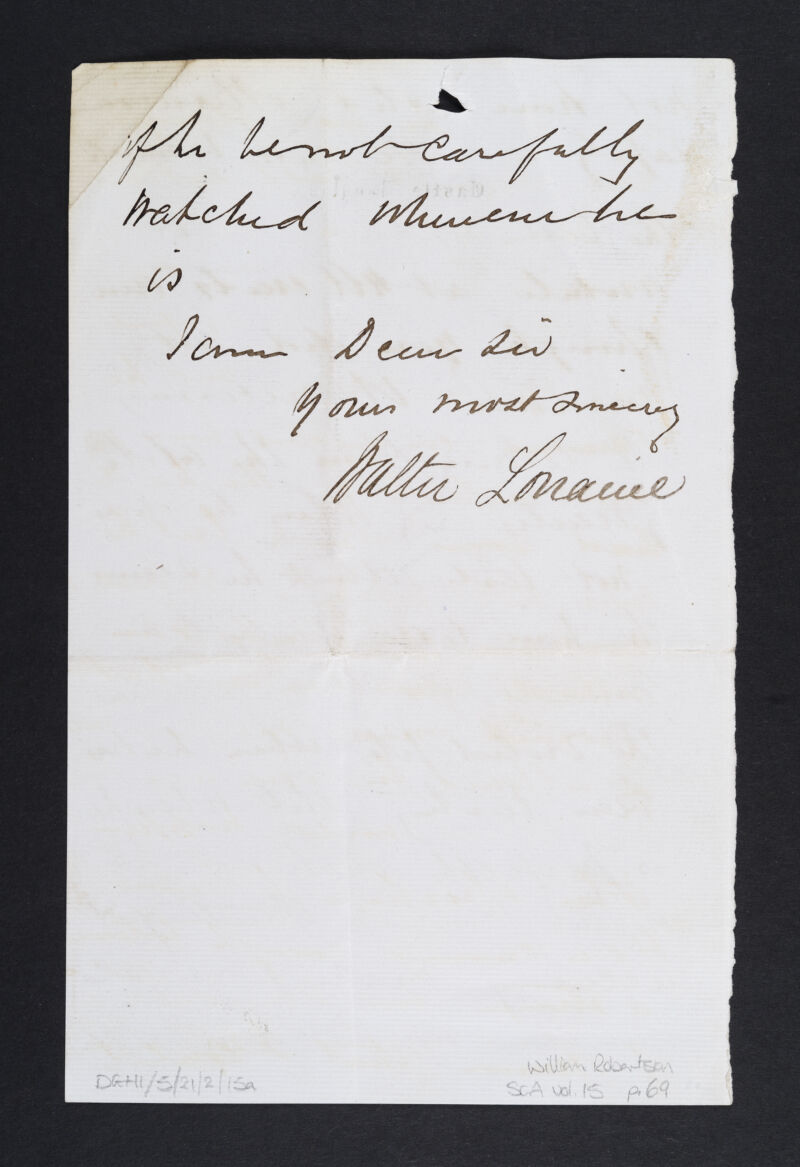 if he be not carefully
watched wherever he
is
I am Dear Sir
Yours most sincerely
Walter Lorraine
DGH1/5/21/2/15a
William Robertson
SCA vol. 15 p. 69